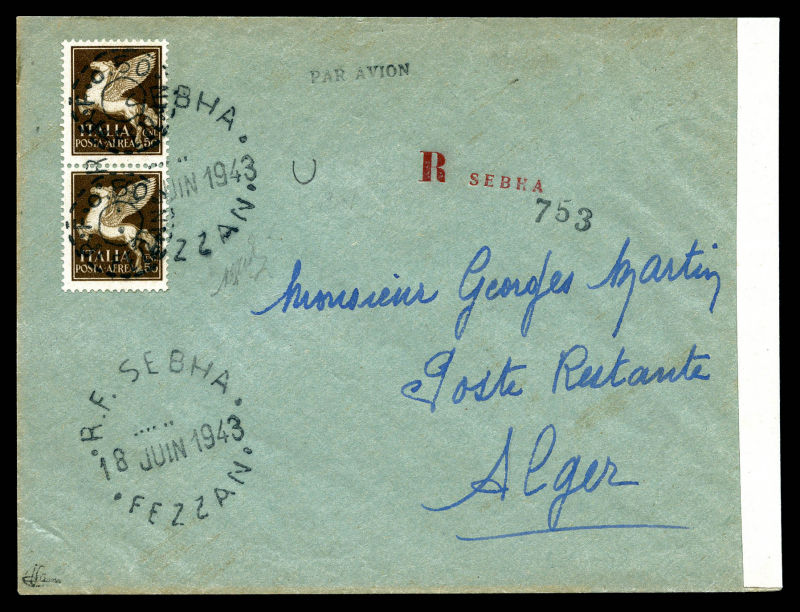 PAR AVION
ITALIA
POSTA-AEREA 50
ITALIA
POSTA-AEREA 50
SEBHA
JUIN 1943
FEZZAN
R SEBHA
753
Monsieur Georges Martin
Poste Restante
Alger
R.F. SEBHA
18 JUIN 1943
FEZZAN